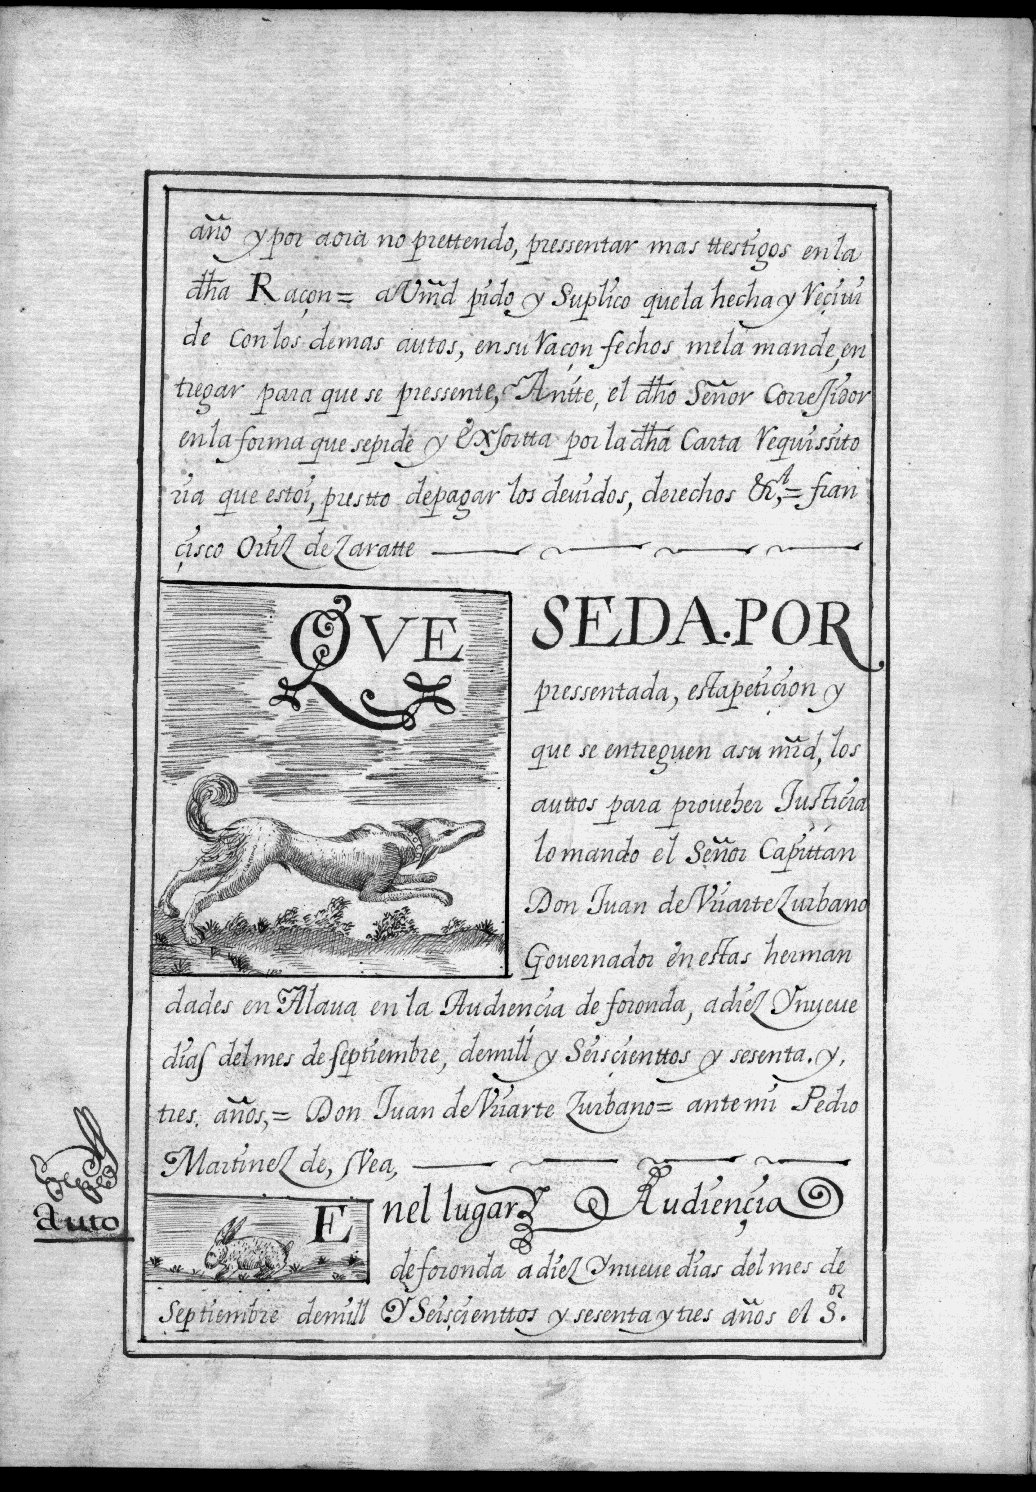 año y por aora no prettendo, pressentar mas ttestigos en la
dha Raçon = a Vmd pido y Suplico que la hecha y Reçiui
de Con los demas autos, en su Raçon fechos me la mande, en
tregar para que se pressente, Antte, el dho Señor Corregidor
en la forma que se pide y exsortta por la dha Carta Requissito
ria que estoi, prestto de pagar los deuidos, derechos &ª,= fran
çisco Ortiz de Zaratte
QVE SEDA.POR
pressentada, esta petiçion y
que se entreguen a su mrd, los
auttos para proueher Justicia
lo mando el Señor Capittan
Don Iuan de Vriarte Zurbano
Gouernador en estas herman
dades en Alaua en la Audiençia de foronda, a diez Y nueue
dias del mes de septiembre, de mill y Seisçienttos y sesenta. y,
tres. años, = Don Iuan de Vriarte Zurbano = ante mi Pedro
Martinez de, Vea,
Auto
E nel lugar y Audiençia
de foronda a diez Y nueue dias del mes de
Septiembre de mill Y Seisçienttos y sesenta y tres años el S.or